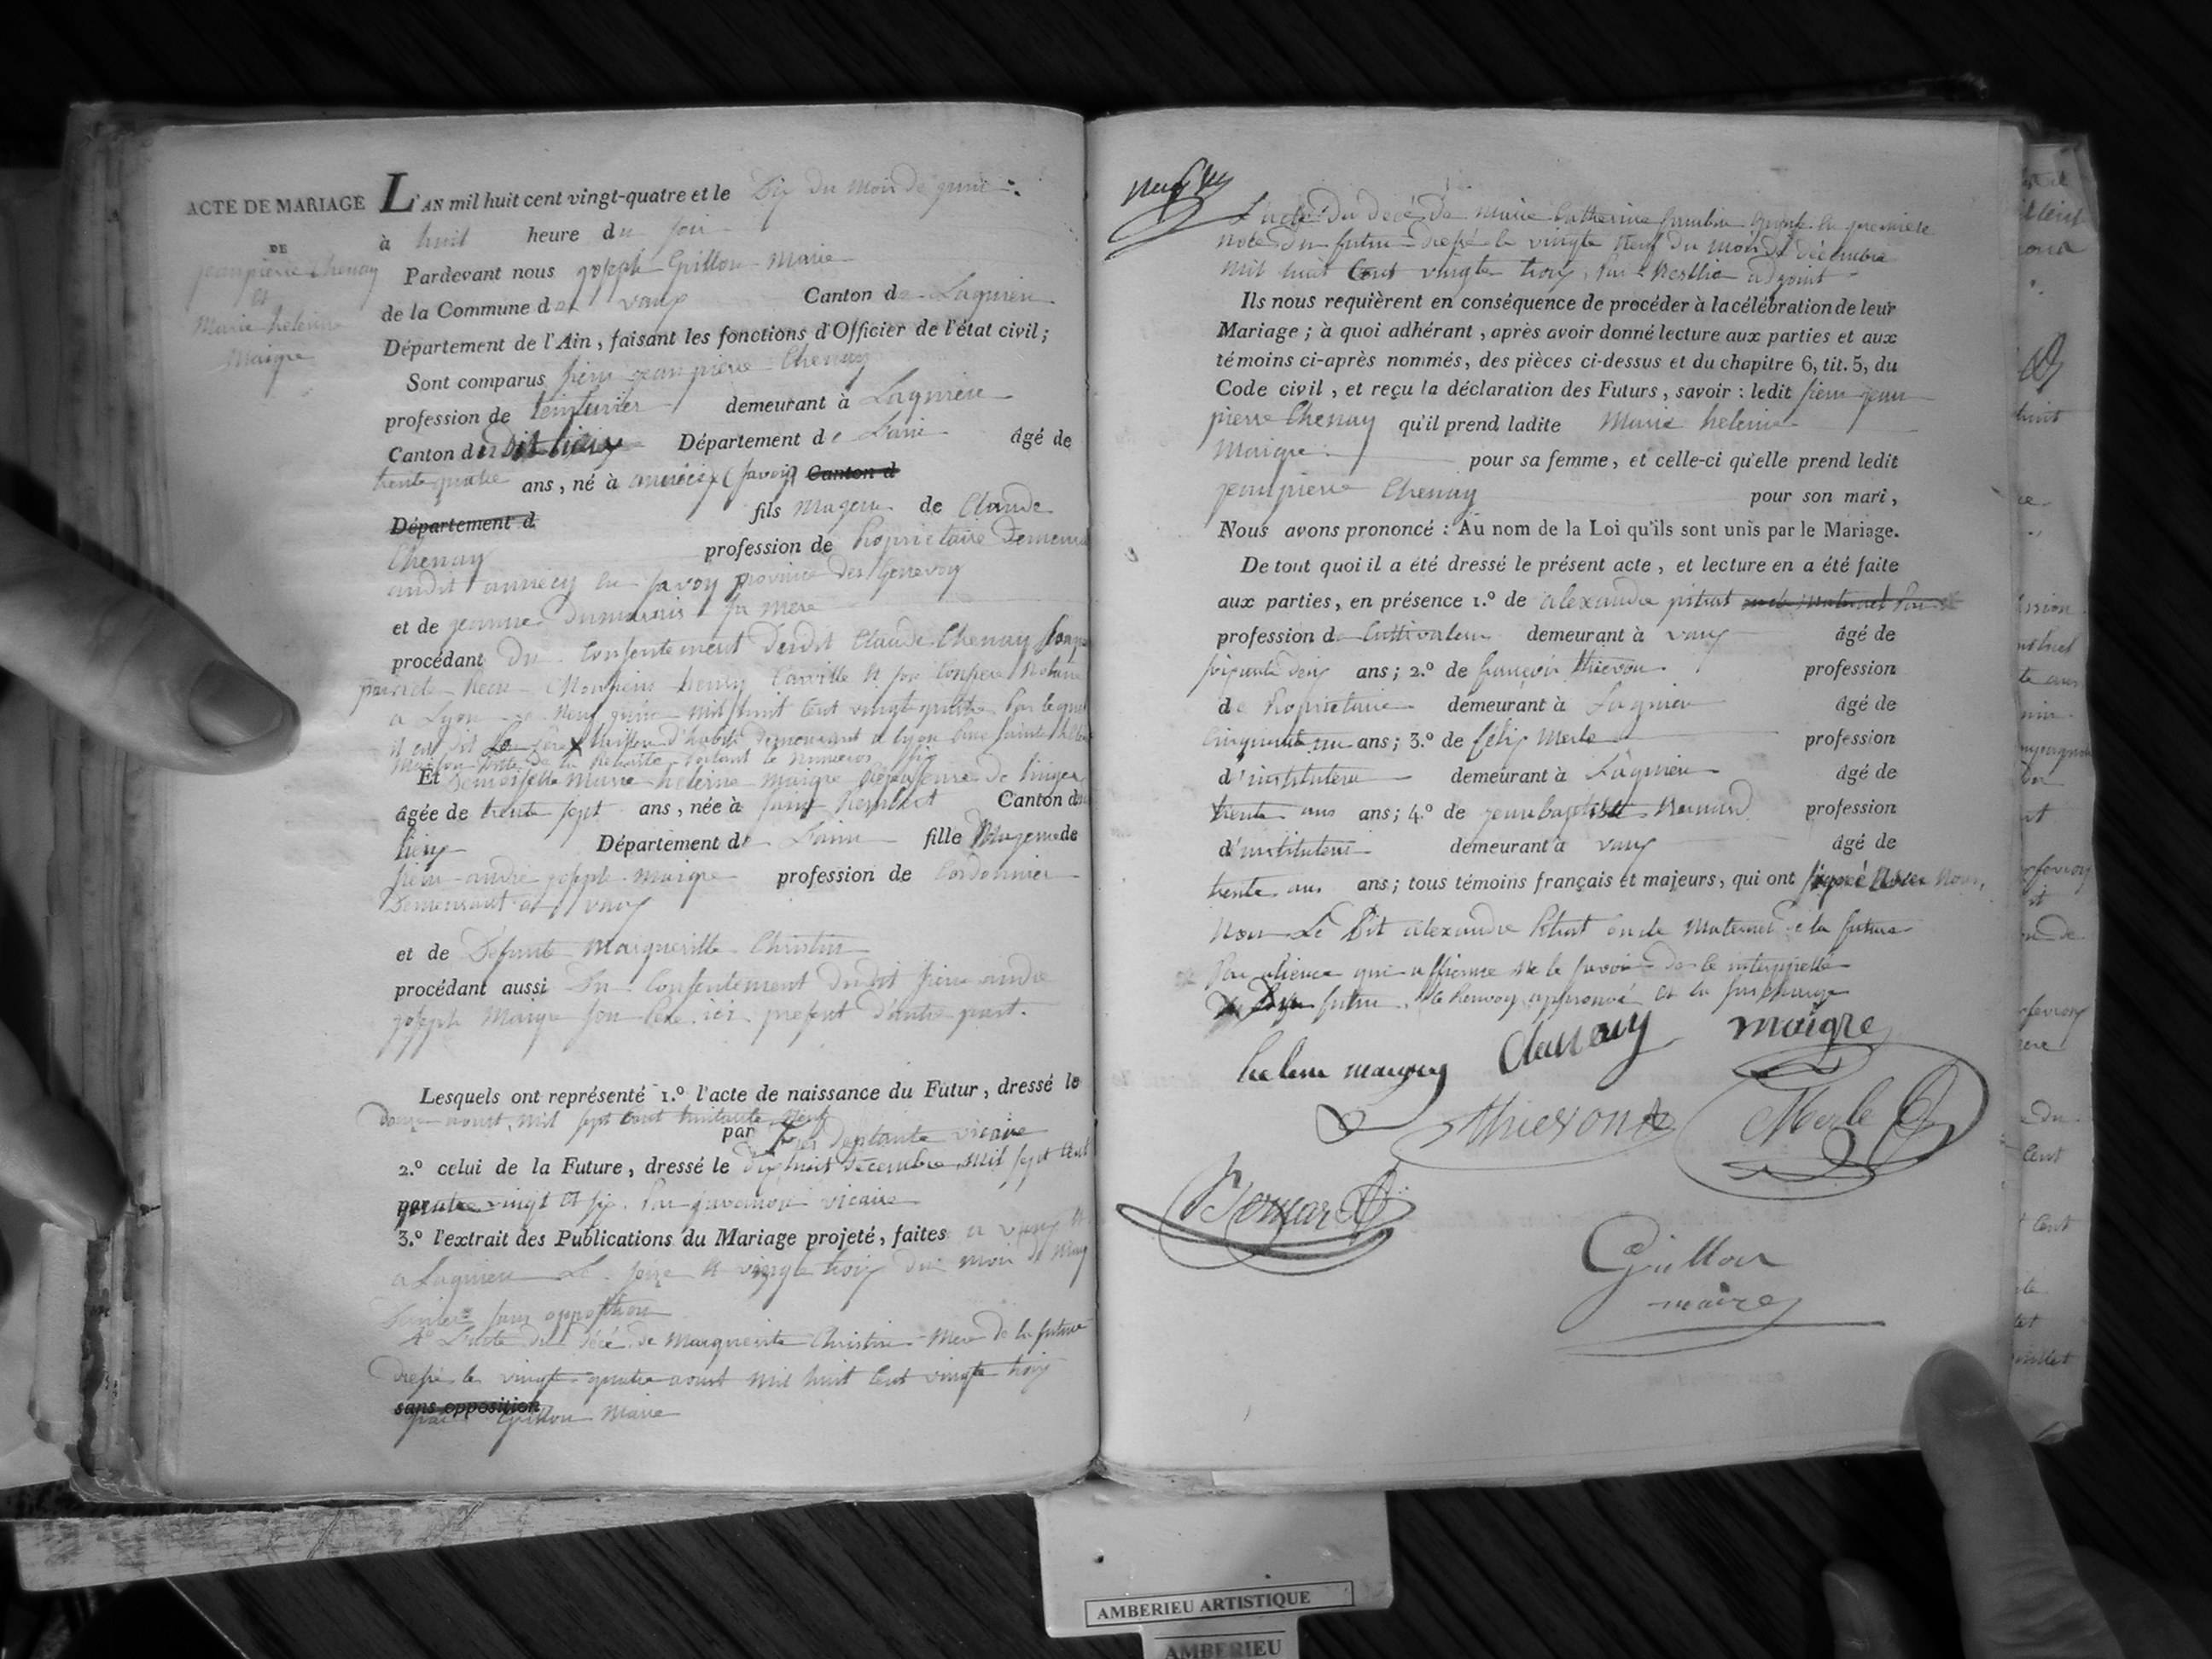 ACTE DE MARIAGE
DE
jean pierre Chenay
et
Marie heleine
Maigre
L'AN mil huit cent vingt-quatre et le Dix du mois de juin
à huit heure du soir
Pardevant nous joseph Grillon Maire
de la Commune de vaux Canton de Lagnieu
Département de l'Ain, faisant les fonctions d'Officier de l'état civil;
Sont comparus sieur jean pierre Chenay
profession de teinturier demeurant à Lagnieu
Canton dudit lieu Département de Lain âgé de
trente quatre ans, né à annecy (savoy) Canton d
Département d fils mageur de Claude
Chenay profession de Proprietaire Demeur
audit annecy en savoy province des Genevoy
et de jeanne Dumarais sa mere
procédant Du Consentement dudit Claude Chenay son
par acte Recu Monsieur henry Carville et son Confrere Notaire
a Lyon le neuf juin mil huit cent vingt quatre Par lequel
il est dit demeurant a lyon Rue sainte helene
Maison dite de la Retraite portant le numeros
Et Demoiselle Marie heleine maigre Repasseuse de linge
âgée de trente sept ans, née à saint Rembert Canton du
lieu Département de Lain fille Mageure de
sieur andre joseph maigre profession de Cordonnier
Demeurant a vaux
et de Défunte Margueritte Christin
procédant aussi Du Consentement dudit sieur andre
joseph Maigre son Pere ici present d'autre part.
Lesquels ont représenté 1.º l'acte de naissance du Futur, dressé le
Douze aoust, mil sept cent huitante neuf
par Deplante vicaire
2.º celui de la Future, dressé le dix huit Décembre mil sept cent
quatre vingt et six. Par vicaire
3.º l'extrait des Publications du Mariage projeté, faites a vaux et
a Lagnieu Le seize et vingte trois du mois de May
Dernier sans opposition
4º L'acte du décé de Marguerite Christin Mere de la future
dressé le vingt quatre aoust mil huit Cent vingte trois
sans opposition
par Grillon Maire
L'acte du décé de Marie Catherine Epouse en premiere
noce du futur dressé le vingte neuf du mois de Décembre
mil huit Cent vingte trois, Par adjoint
Ils nous requièrent en conséquence de procéder à la célébration de leur
Mariage; à quoi adhérant, après avoir donné lecture aux parties et aux
témoins ci-après nommés, des pièces ci-dessus et du chapitre 6, tit. 5, du
Code civil, et reçu la déclaration des Futurs, savoir: ledit sieur jean
pierre Chenay qu'il prend ladite Marie heleine
Maigre pour sa femme, et celle-ci qu'elle prend ledit
jean pierre Chenay pour son mari,
Nous avons prononcé: Au nom de la Loi qu'ils sont unis par le Mariage.
De tout quoi il a été dressé le présent acte, et lecture en a été faite
aux parties, en présence 1.º de alexandre pitrat oncle Maternel
profession de Cultivateur demeurant à vaux âgé de
soixante deux ans; 2.º de françois thievon profession
de Proprietaire demeurant à Lagnieu âgé de
Cinquante un ans; 3.º de felix Merle profession
d'instituteur demeurant à Lagnieu âgé de
trente ans ans; 4.º de jean baptiste Bernard profession
d'instituteur demeurant à vaux âgé de
trente ans ans; tous témoins français et majeurs, qui ont signé avec Nous,
Non Le Dit alexandre Pitrat oncle Maternel de la future
Par alience qui a affirmé ne le savoir de ce interpellé
futur, le Renvoy approuvé et la surcharge
helene maigre Chenay maigre
thievon Merle
Bernard
Grillon
maire
AMBERIEU ARTISTIQUE
AMBERIEU